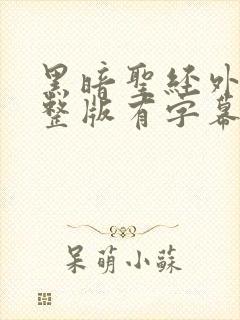 黑暗聖經外
整版有字幕
呆萌小蘇